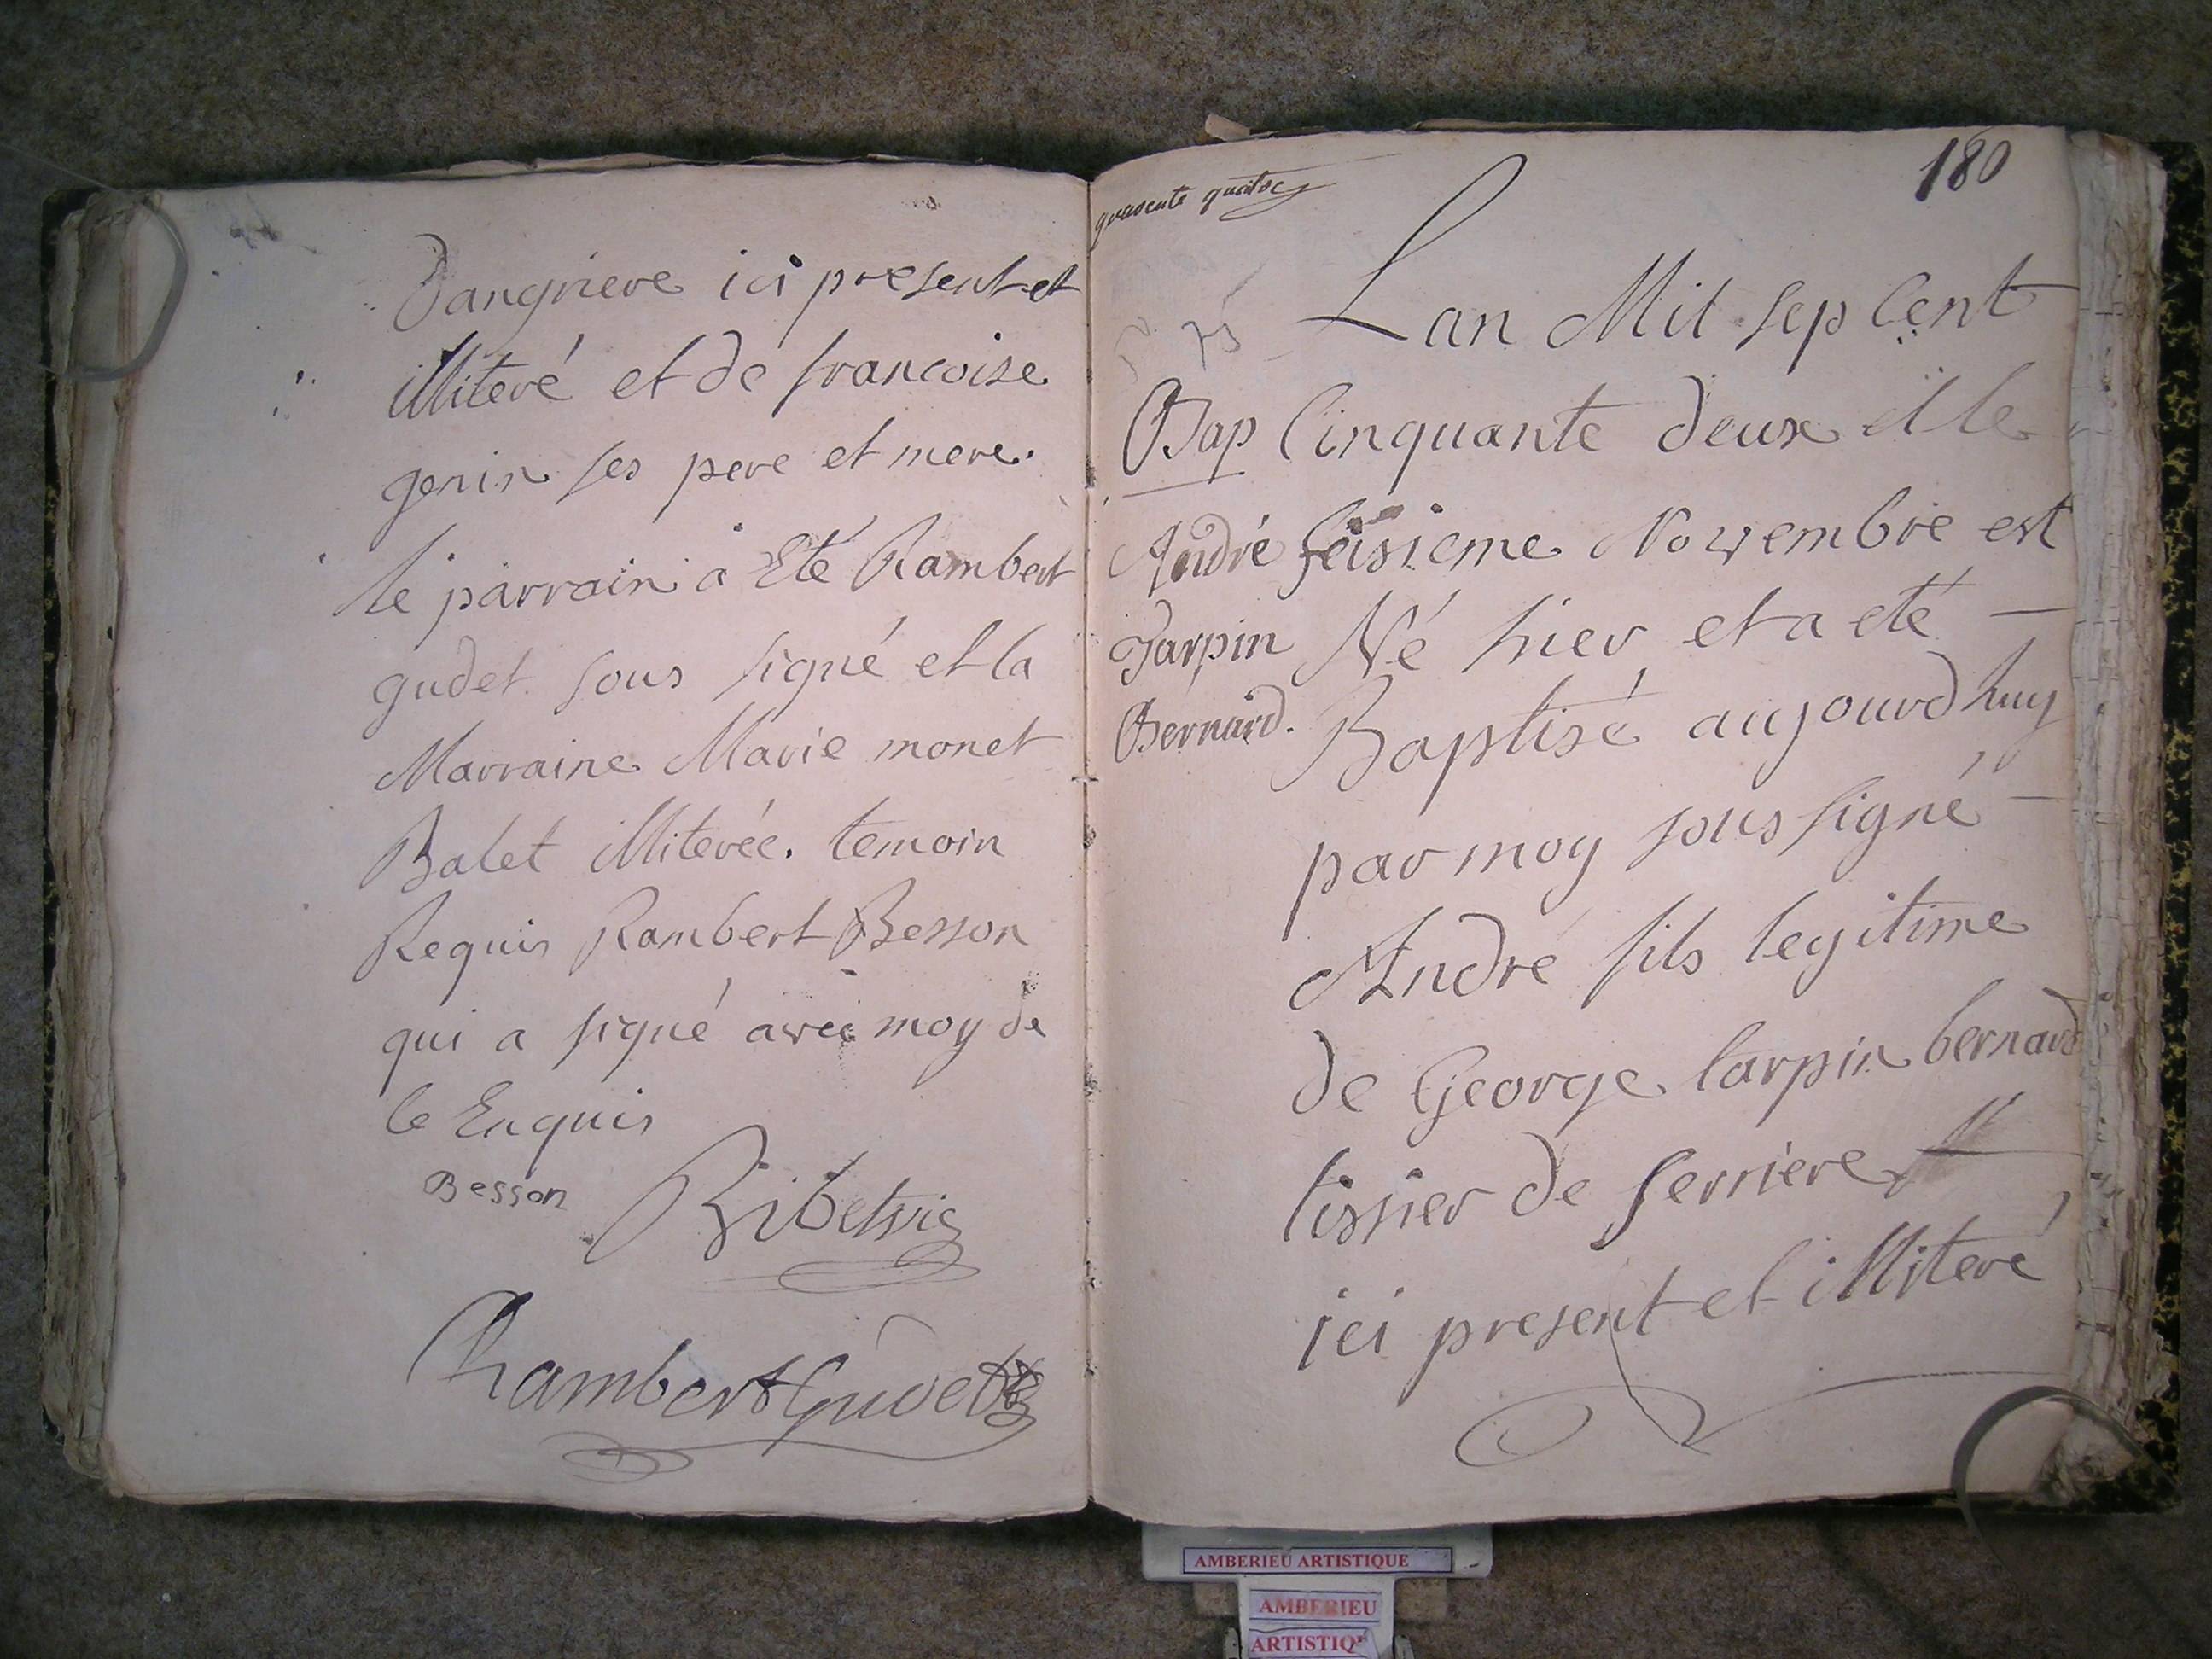 Dangriere ici present et
illiteré et de francoise
genin ses pere et mere.
le parrain a Eté Rambert
gudet sous signé et la
Marraine Marie monet
Balet illiterée. temoin
Requis Rambert Besson
qui a signé avec moy de
ce Enquis
Besson
Rambert Gudet
quarente quatre
180
75
Lan Mil sep Cent
Bap Cinquante deux et le
André seisieme Novembre est
Tarpin Né hier et a eté
Bernard. Baptisé aujourdhuy
par moy sous signé
André fils legitime
de George tarpin bernard
tissier de serriere
ici present et illiteré
AMBERIEU ARTISTIQUE
AMBERIEU
ARTISTIQ